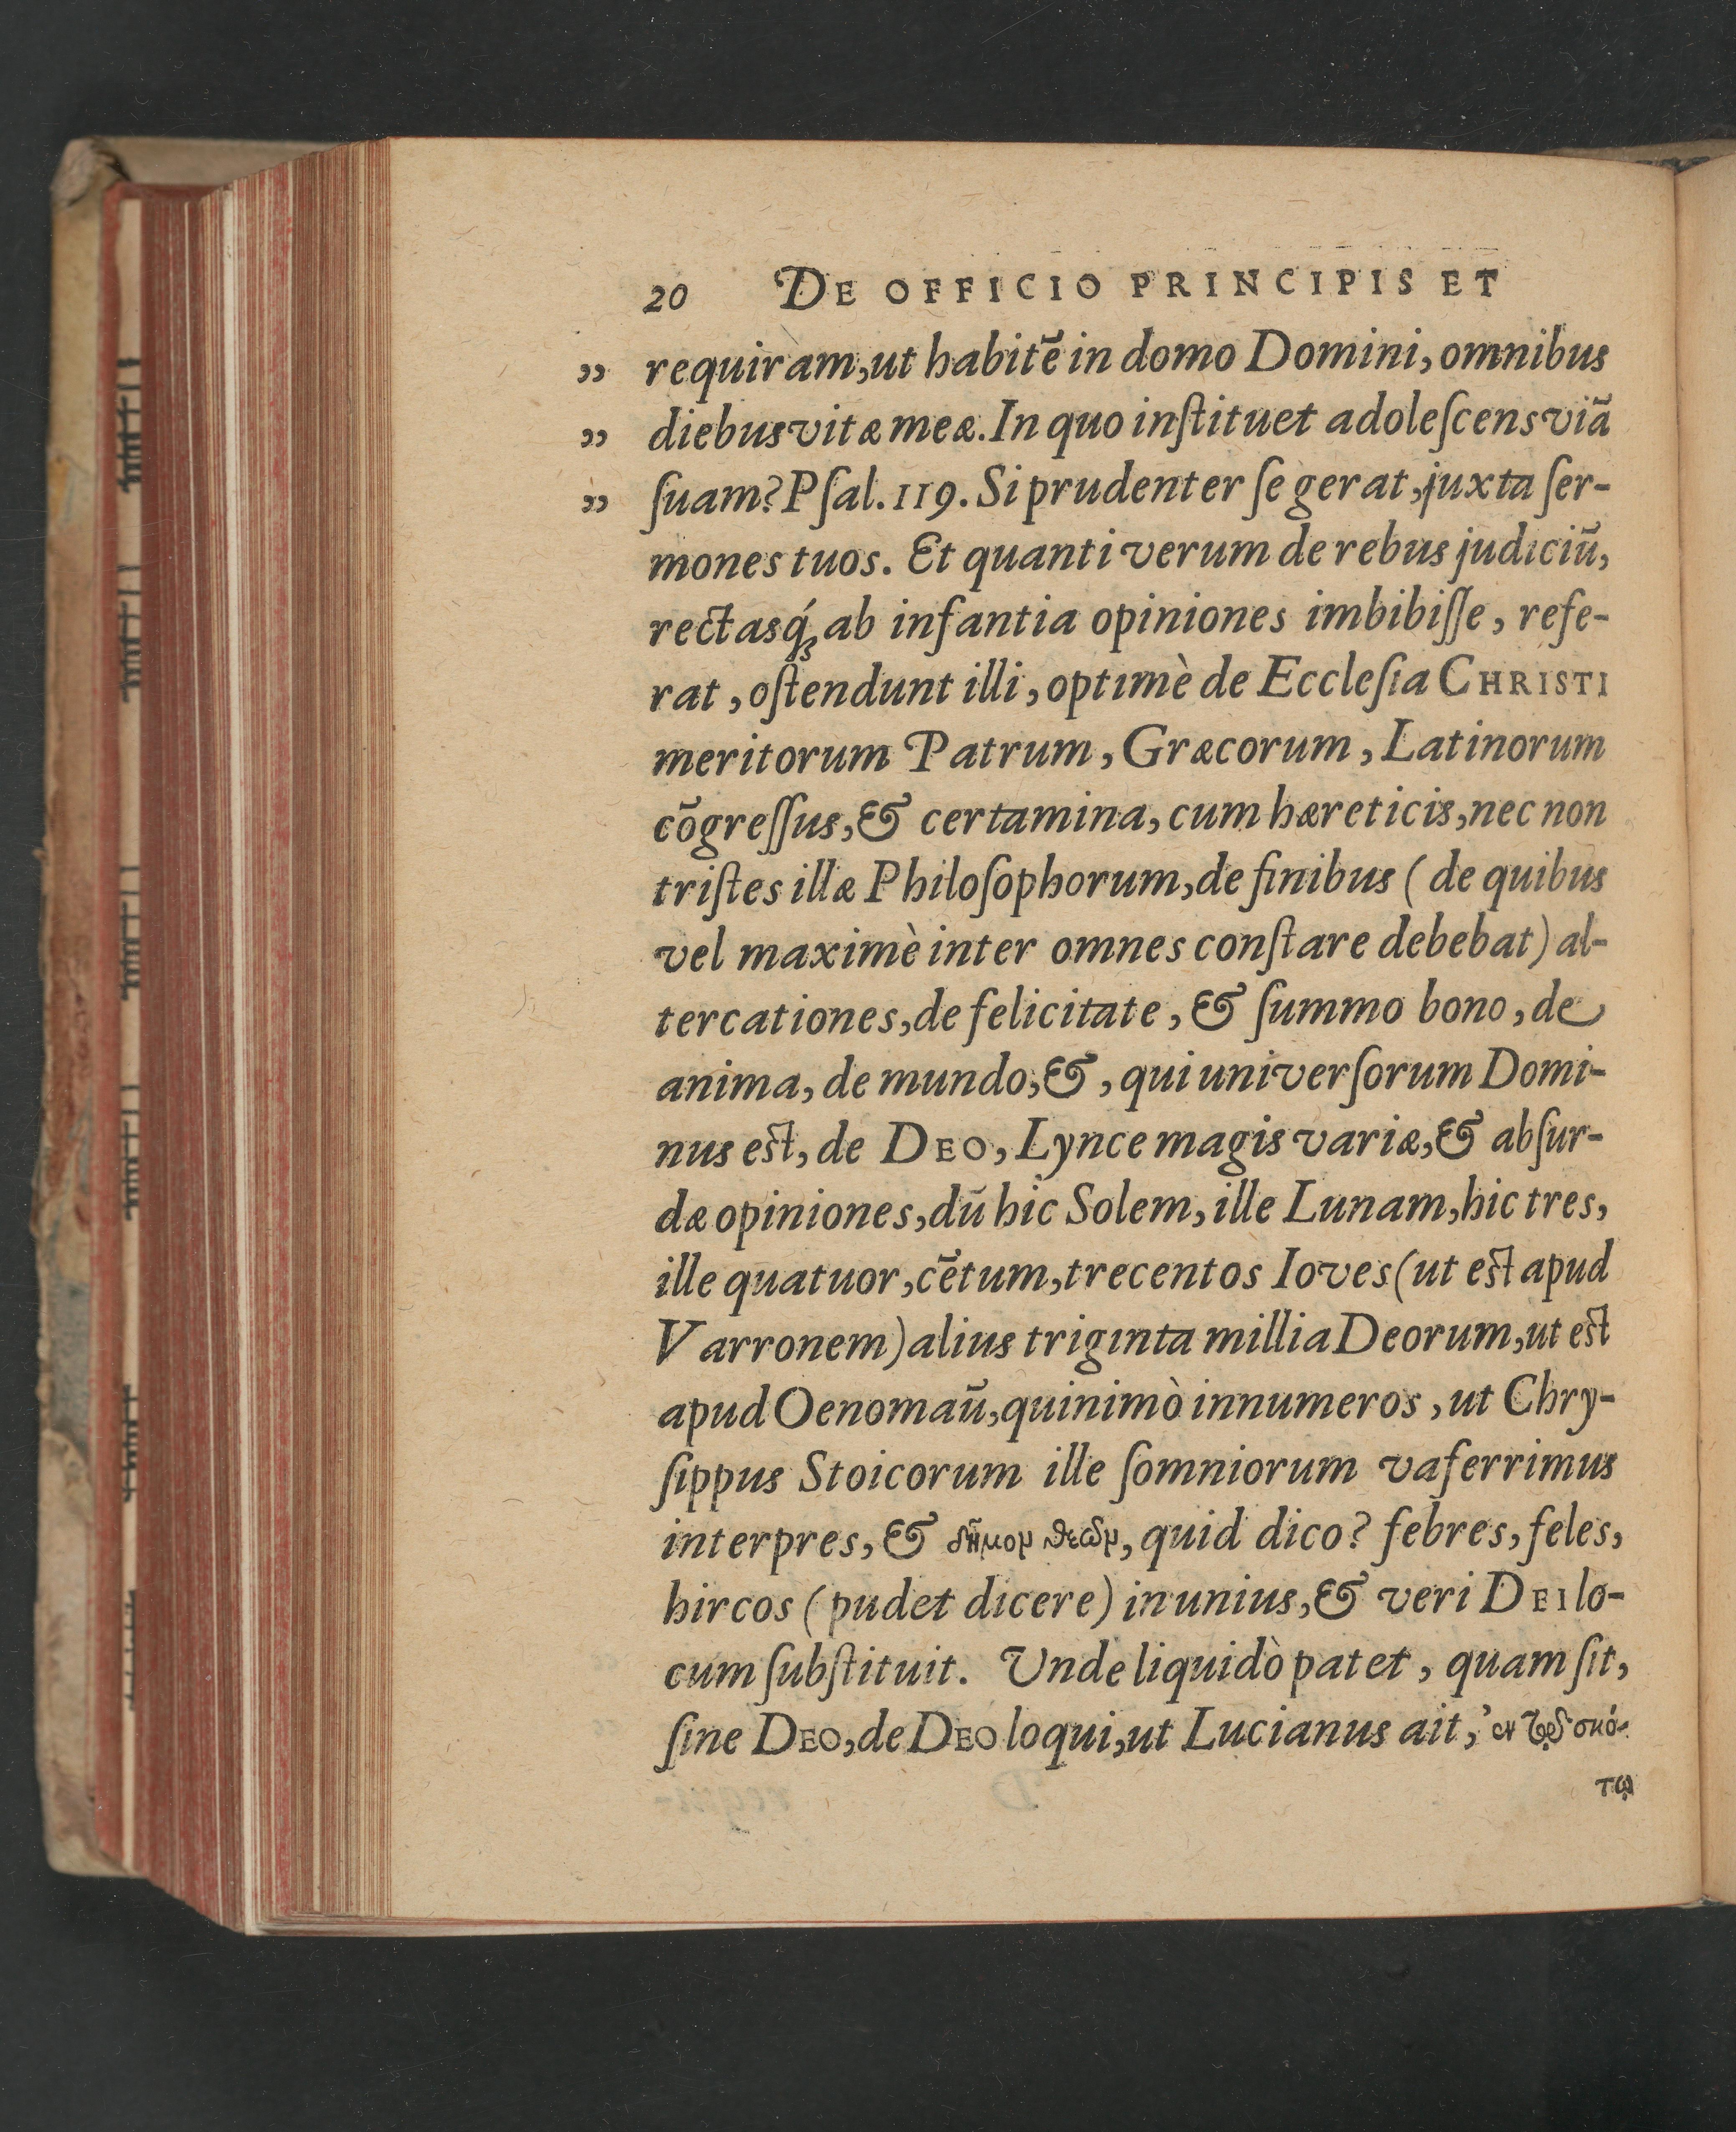 20 DE OFFICIO PRINCIPIS ET
„ requiram, ut habitē in domo Domini, omnibus
„ diebus vitæ meæ. In quo inſtituet adoleſcens viā
„ ſuam? Pſal. 119. Si prudenter ſe gerat, juxta ſer-
mones tuos. Et quanti verum de rebus judiciū,
rectasq́ꝫ ab infantia opiniones imbibiſſe, refe-
rat, oſtendunt illi, optimè de Eccleſia CHRISTI
meritorum Patrum, Græcorum, Latinorum
cōgreſſus, & certamina, cum hæreticis, nec non
triſtes illæ Philoſophorum, de finibus (de quibus
vel maximè inter omnes conſtare debebat) al-
tercationes, de felicitate, & ſummo bono, de
anima, de mundo, &, qui univerſorum Domi-
nus eſt, de DEO, Lynce magis variæ, & abſur-
dæ opiniones, dū hic Solem, ille Lunam, hic tres,
ille quatuor, cētum, trecentos Ioves (ut eſt apud
Varronem) alius triginta millia Deorum, ut eſt
apud Oenomaū, quinimò innumeros, ut Chry-
ſippus Stoicorum ille ſomniorum vaferrimus
interpres, & δῆμον θεῶν, quid dico? febres, feles,
hircos (pudet dicere) in unius, & veri DEI lo-
cum ſubſtituit. Unde liquidò patet, quam ſit,
ſine DEO, de DEO loqui, ut Lucianus ait, σκό-
τῳ